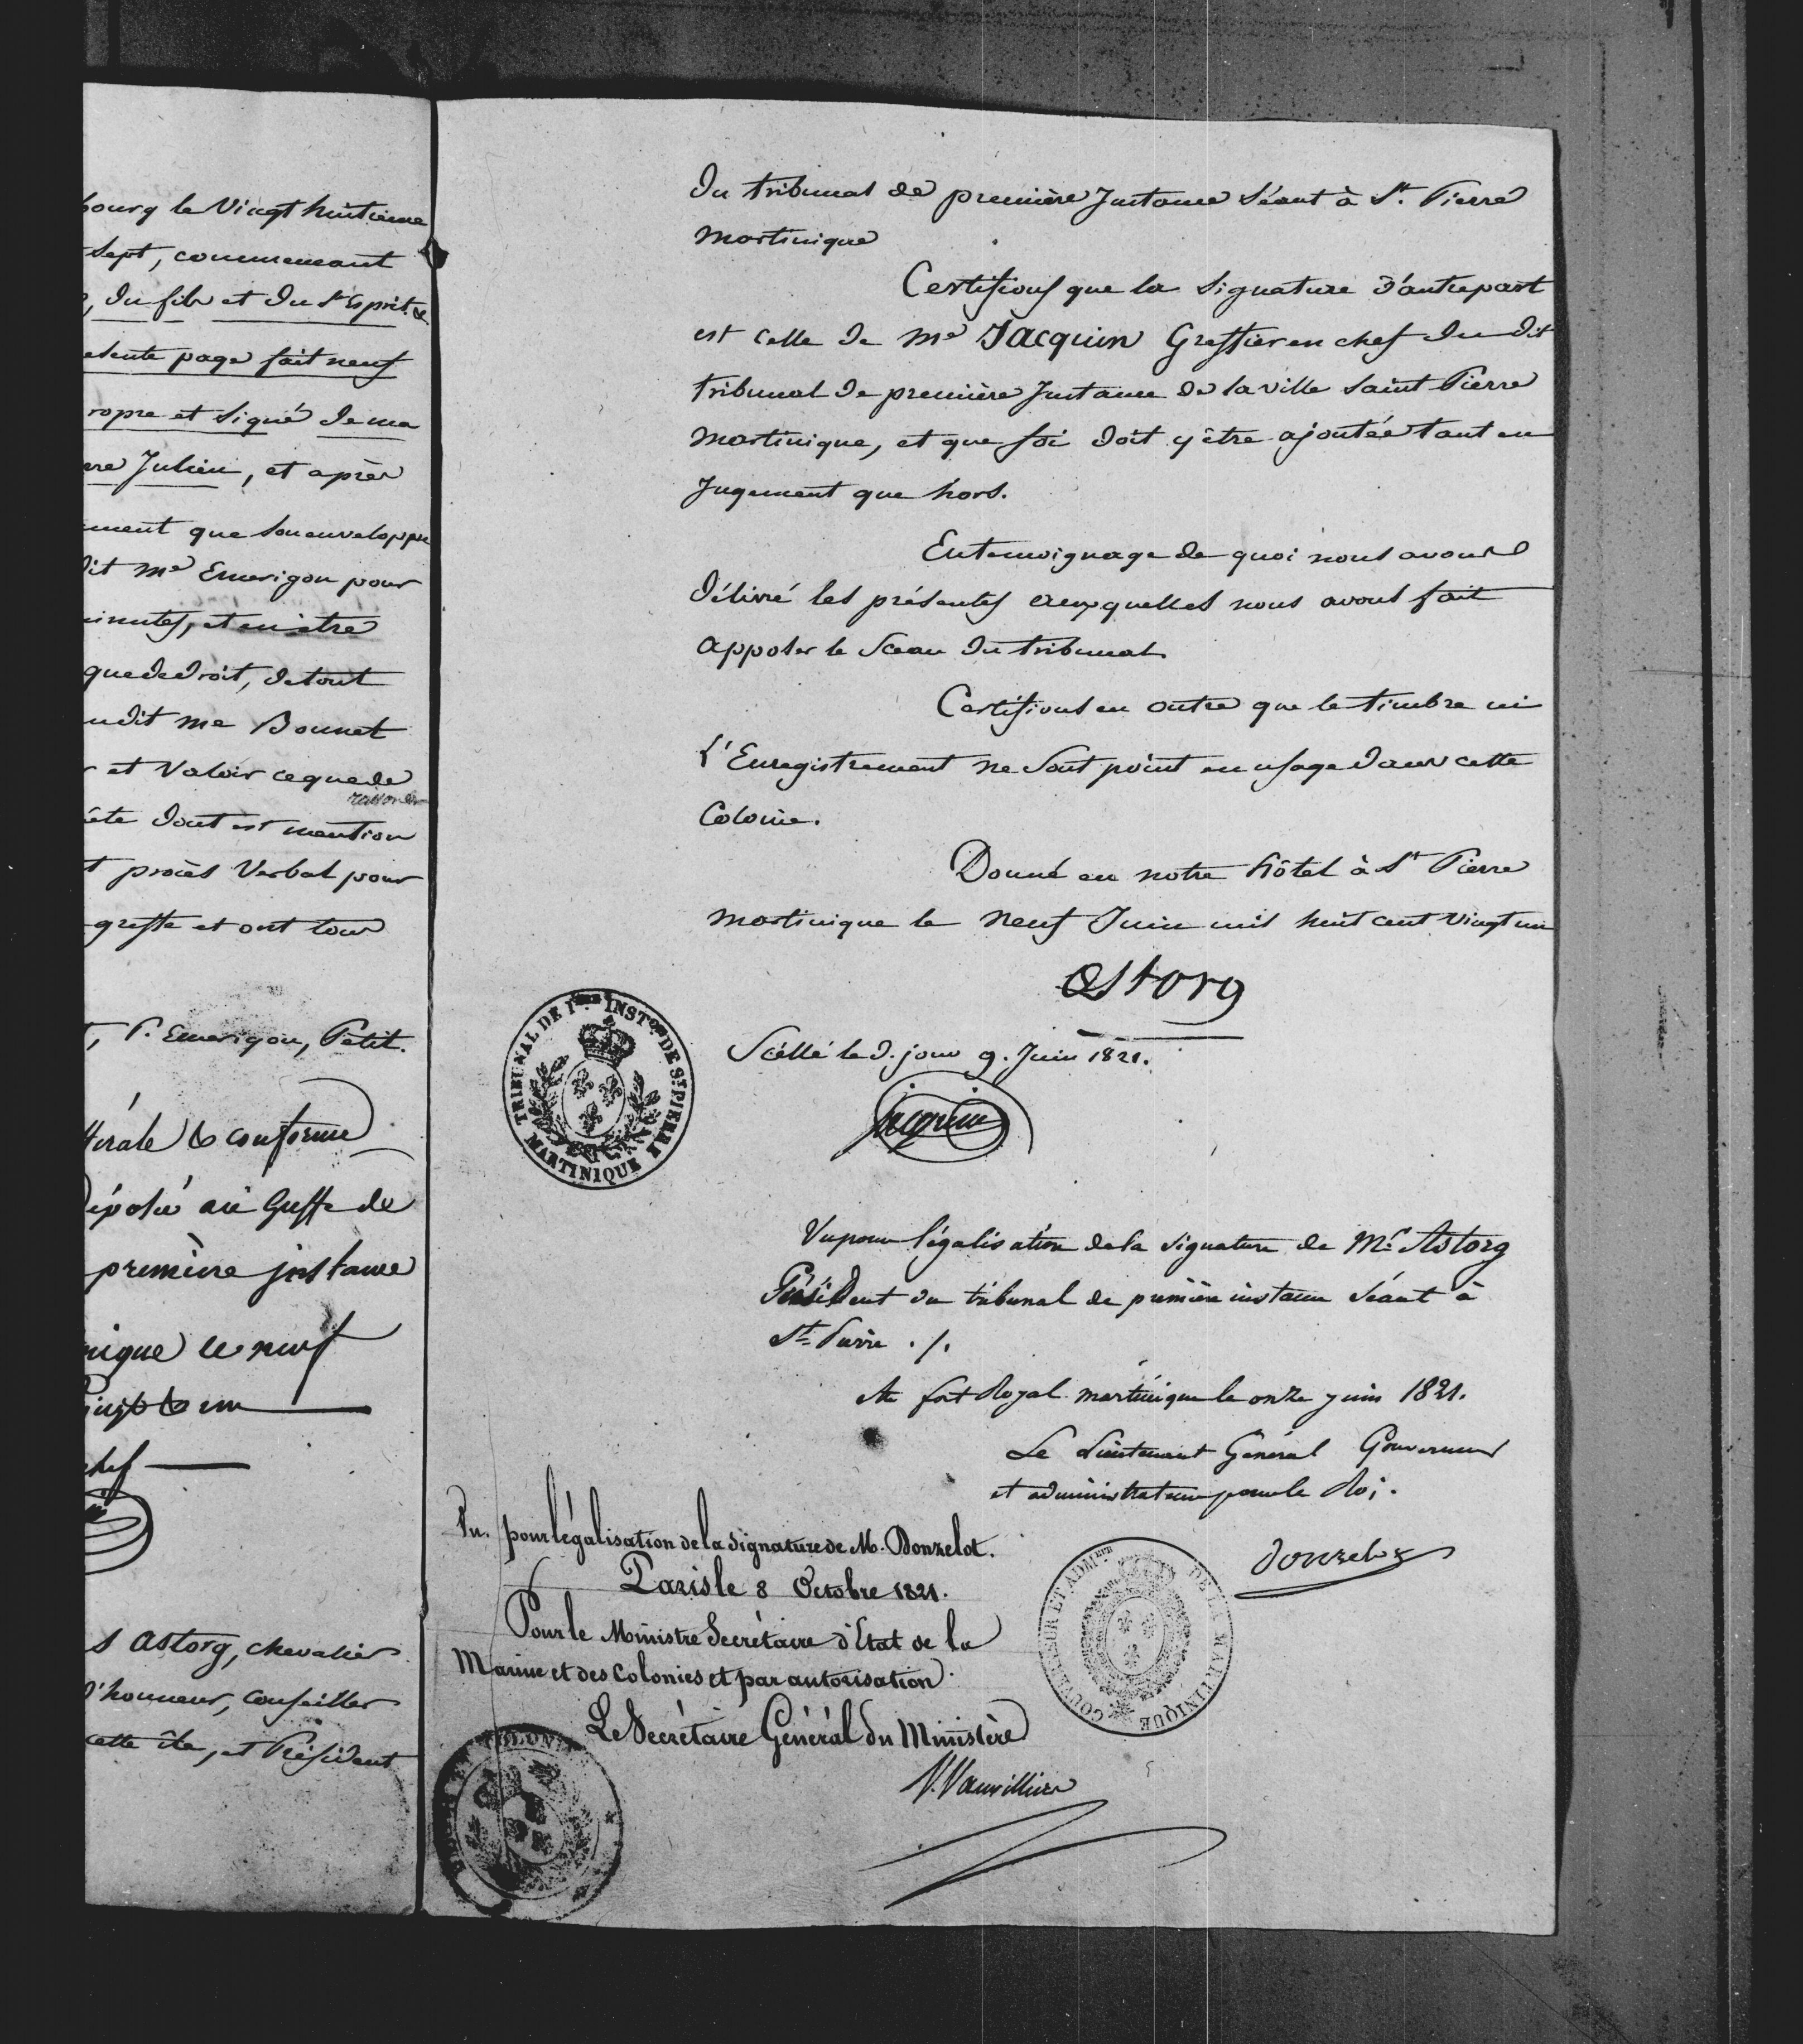 bourg le Vingt huitieme
sept, commencant
, du fils et du St Esprit &
esente page fait neuf
ropre et signé de ma
ere Julien, et après
ement que son enveloppe
dit Me Emerigon pour
inutes, et en être
que de droit, de tout
udit me Bonnet
r et Valoir ce que de
raison
ête dont est mention
t procès Verbal pour
greffe et ont tous
t, P. Emerigon, Petit.
ttérale & conforme
déposé au Greffe de
première instance
nique le neuf
Vingt & un
chef
s Astorg, chevalier
d'honneur, Conseiller
cette île, et Président
Du tribunal de première Instance Séant à St. Pierre
Martinique
Certifions que la signature d'autrepart
est celle de Me Jacquin Greffier en chef du dit
tribunal de première Instance de la ville Saint Pierre
Martinique, et que foi doit y être ajoutée tant en
Jugement que hors.
En temoignage de quoi nous avons
délivré les présentes auxquelles nous avons fait
apposer le Sceau du tribunal.
Certifions en outre que le timbre ni
L'Enregistrement ne sont point en usage dans cette
Colonie.
Donné en notre hôtel à St Pierre
Martinique le neuf Juin mil huit cent vingt un
Astorg
Scéllé le d. jour 9. Juin 1821.
jacquin
TRIBUNAL DE 1ere INSTce DE ST PIERRE
MARTINIQUE
Vu pour légalisation de la signature de Mr. Astorg
Président du tribunal de première instance séant à
St. Pierre ./.
Au fort Royal martinique le onze juin 1821.
Le Lieutenant Général Gouverneur
et administrateur pour le Roi.
Donzelot
GOUVERNEUR ET ADMeur DE LA MARTINIQUE
Vu pour légalisation de la signature de M. Donzelot.
Paris le 8 Octobre 1821.
Pour le Ministre Secrétaire d'Etat de la
Marine et des Colonies et par autorisation.
Le Secrétaire Général du Ministère
V. Vauvilliers